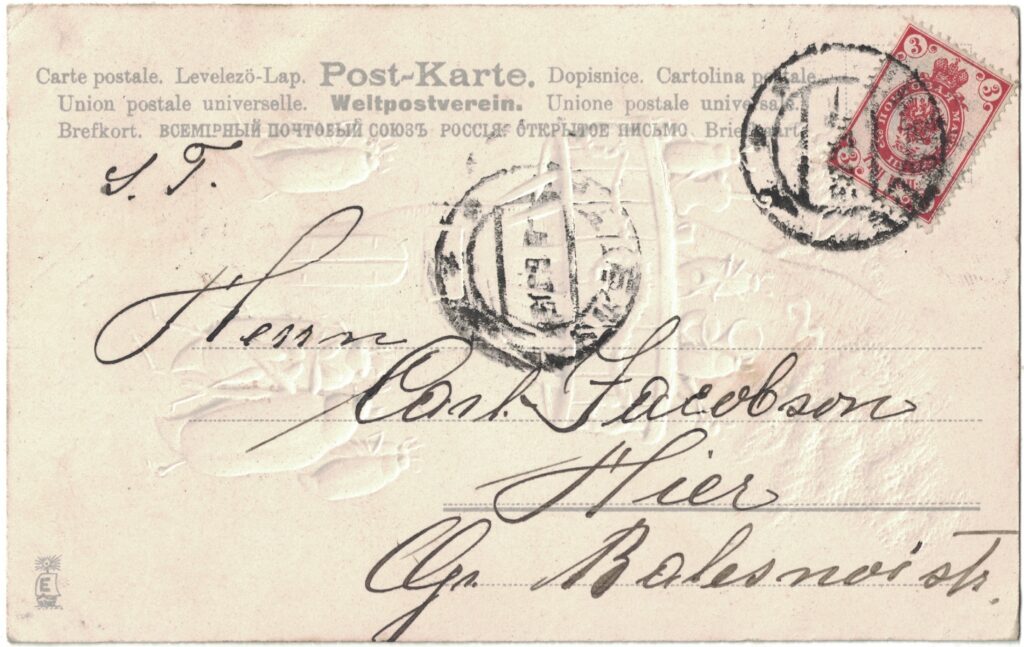 Carte postale. Levelezö-Lap. Post-Karte. Dopisnice. Cartolina postale.
Union postale universelle. Weltpostverein. Unione postale universale.
Brefkort. ВСЕМІРНЫЙ ПОЧТОВЫЙ СОЮЗЪ РОССІЯ. ОТКРЫТОЕ ПИСЬМО Briefkaart.
3 3
3
S. T.
Herrn
Carl Jacobson
Hier
Gr. Balesnoistr.
E